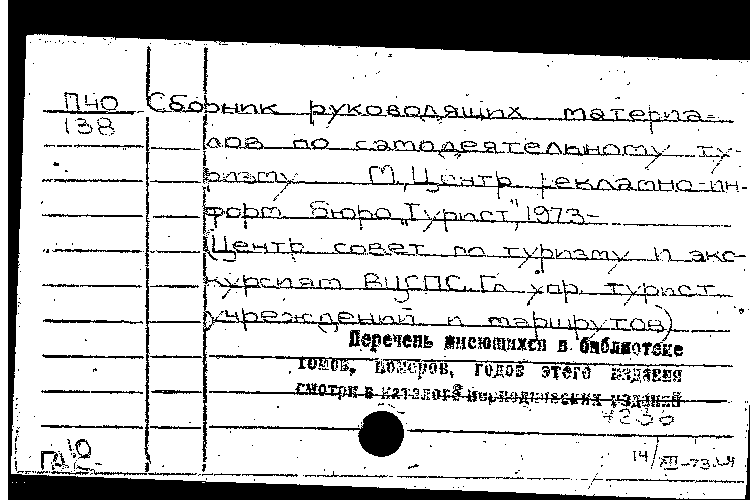 П40 Сборник руководящих материа-
138
лов по самодеятельному ту-
ризму М., Центр. рекламно-ин-
форм. бюро „Турист", 1973-
(Центр. совет по туризму и экс-
курсиям ВЦСПС. Гл. упр. турист.
учреждений и маршрутов)
Перечень имеющихся в библиотеке
томов, номеров, годов этого издания
смотри в каталоге периодических изданий
14/XII-73